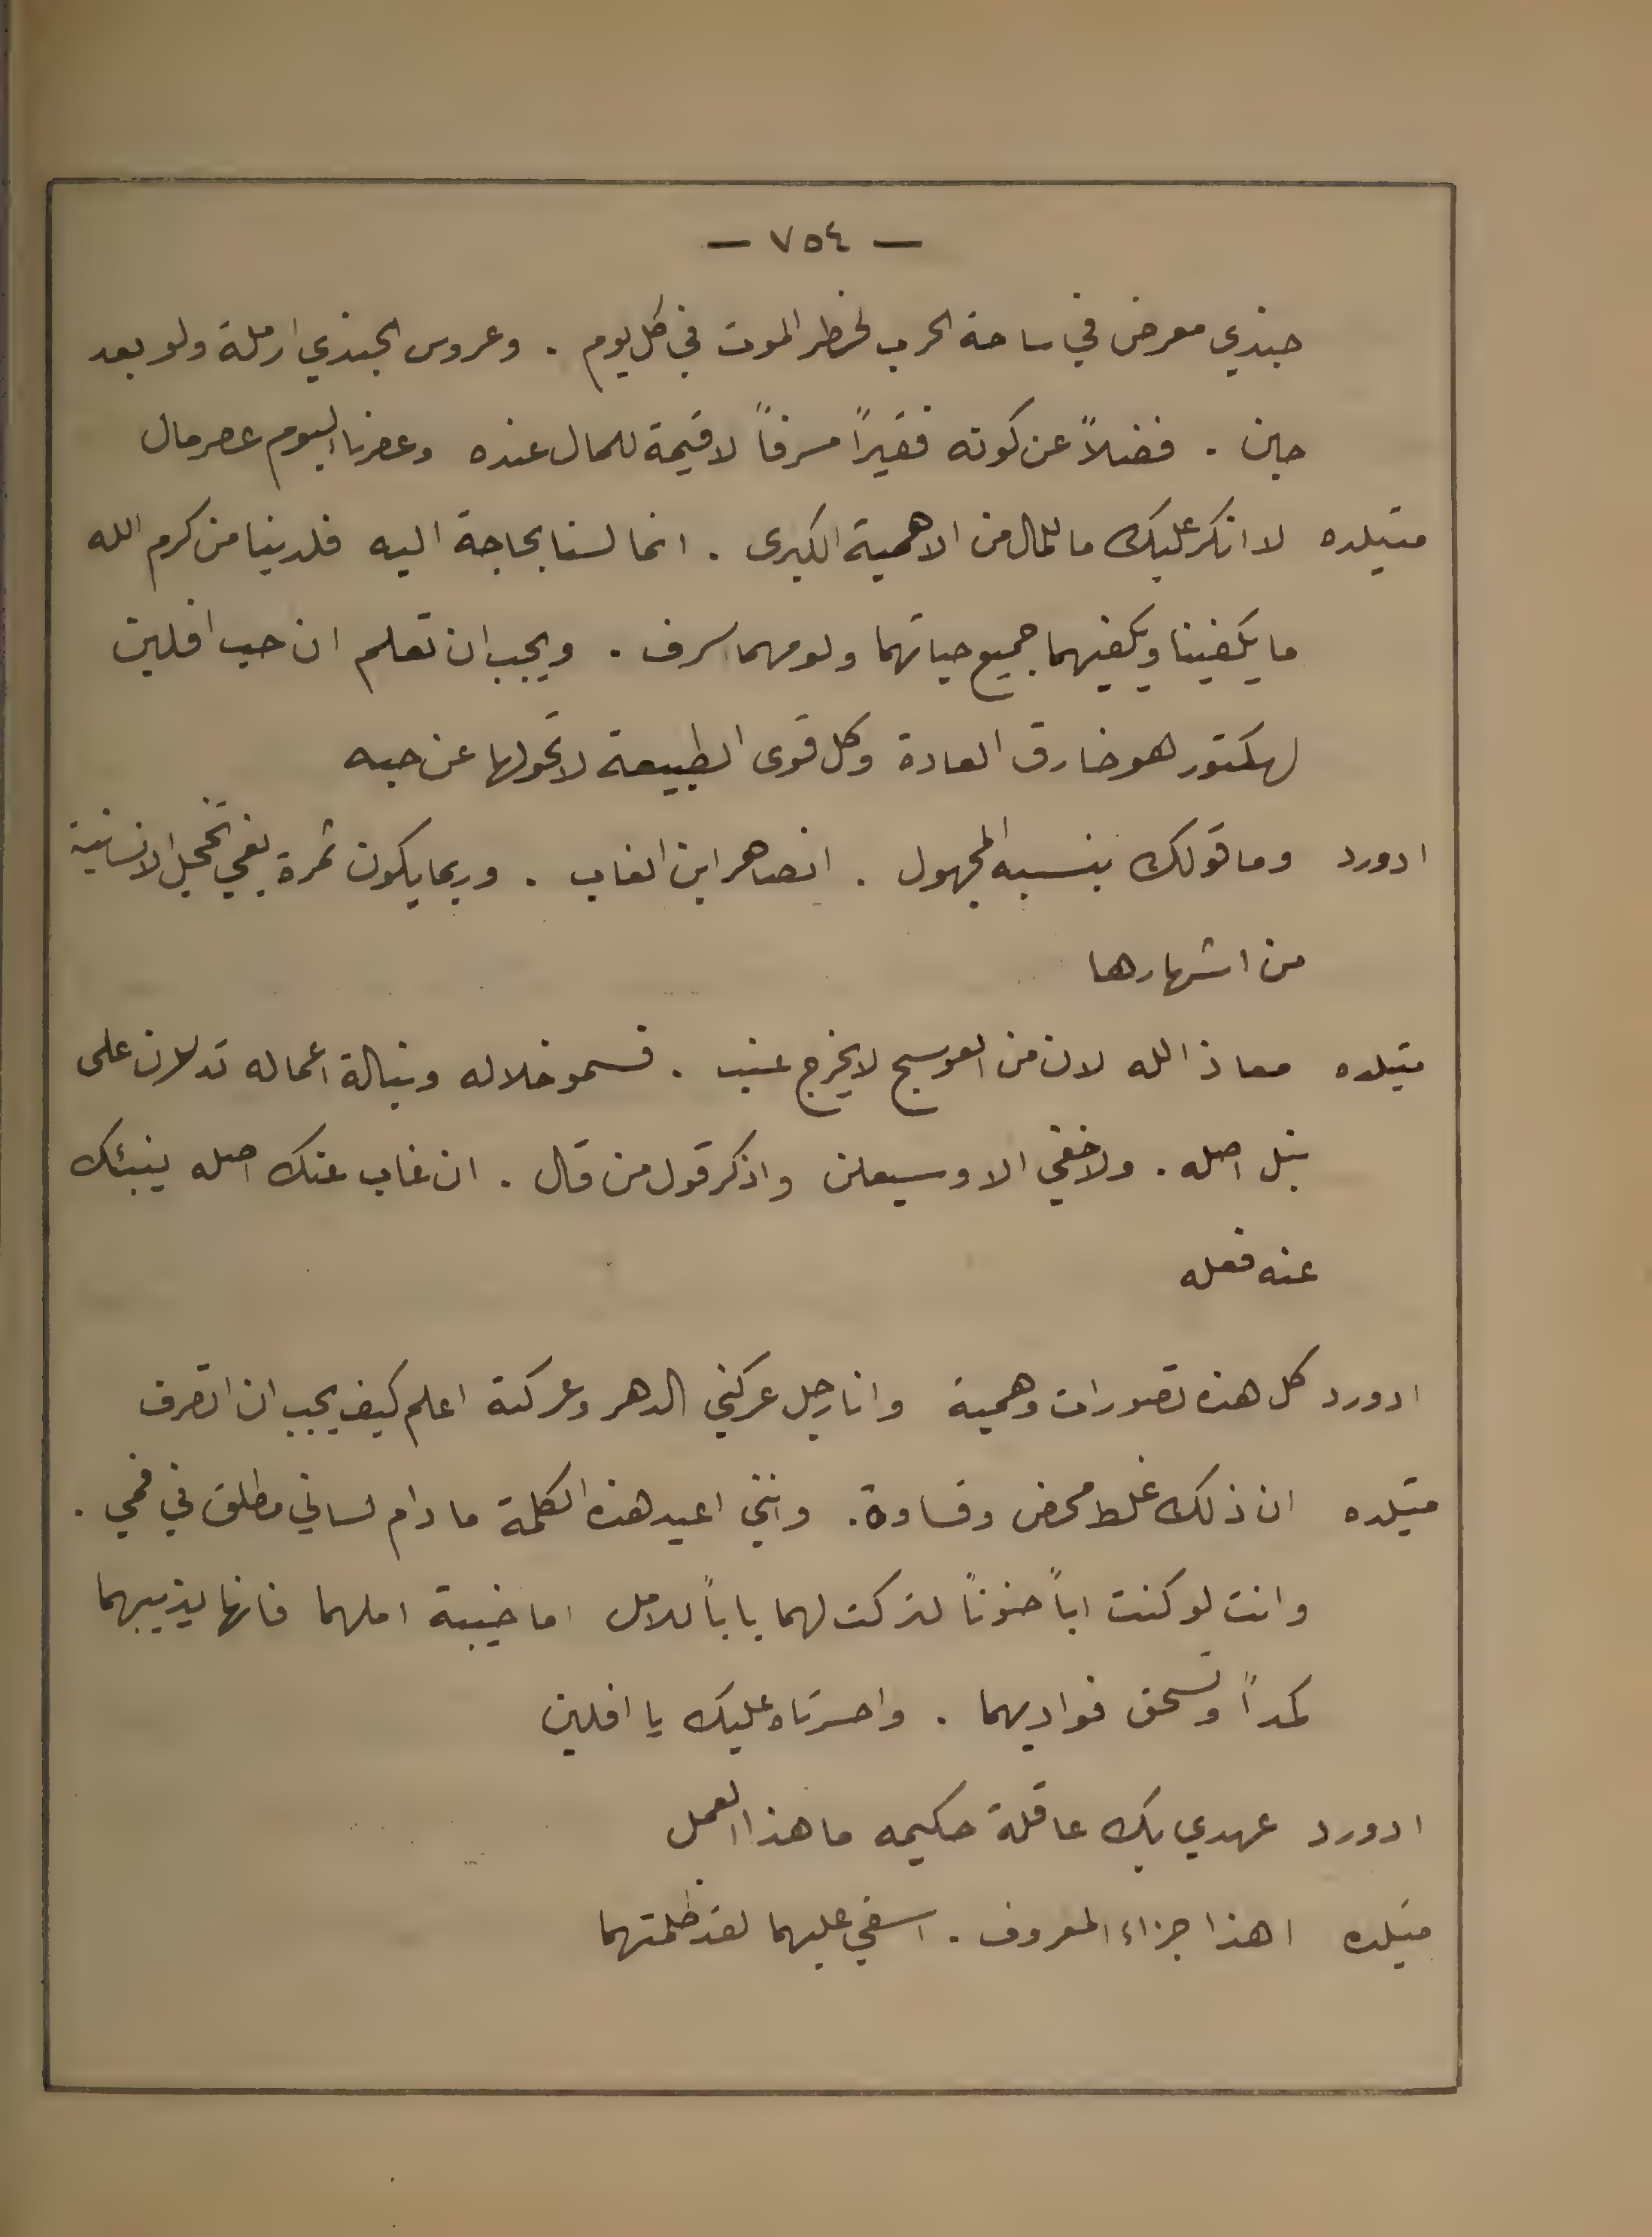 — ٧٥٤ —
جندي معرض في ساحة الحرب لخطر الموت في كل يوم . وعروس الجندي ارملة ولو بعد
حين . فضلاً عن كونه فقيراً مسرفاً لا قيمة للمال عنده وعصرنا اليوم عصر مال
متيلده لا انكر عليك ما للمال من الاهمية الكبرى . انما لسنا بحاجة اليه فلدينا من كرم الله
ما يكفينا ويكفيهما جميع حياتهما ولو مهما اسرف . ويجب ان تعلم ان حب افلين
لهكتور هو خارق العادة وكل قوى الطبيعة لا تحولها عن حبه
ادورد وما قولك بنسبه المجهول . انصاهر ابن الغاب . وربما يكون ثمرة بغي تخجل الانسانية
من اشهارها
متيلده معاذ الله لان من العوسج لا يخرج عنب . فسمو خلاله ونبالة اعماله تدللان على
نبل اصله . ولا خفي الا وسيعلن واذكر قول من قال . ان غاب عنك اصله ينبئك
عنه فعله
ادورد كل هذه تصورات وهمية وانا رجل عركني الدهر وعركته اعلم كيف يجب ان اتصرف
متيلده ان ذلك غلط محض وقساوة . وانني اعيد هذه الكلمة ما دام لساني مطلق في فمي .
وانت لو كنت اباً حنوناً لتركت لهما باباً للامل اما خيبة املهما فانها يذيبهما
كمداً وتسحق فواديهما . واحسرتاه عليك يا افلين
ادورد عهدي بك عاقلة حكيمه ما هذا العمل
متيلده اهذا جزاء المعروف . اسفي عليهما لقد ظلمتهما